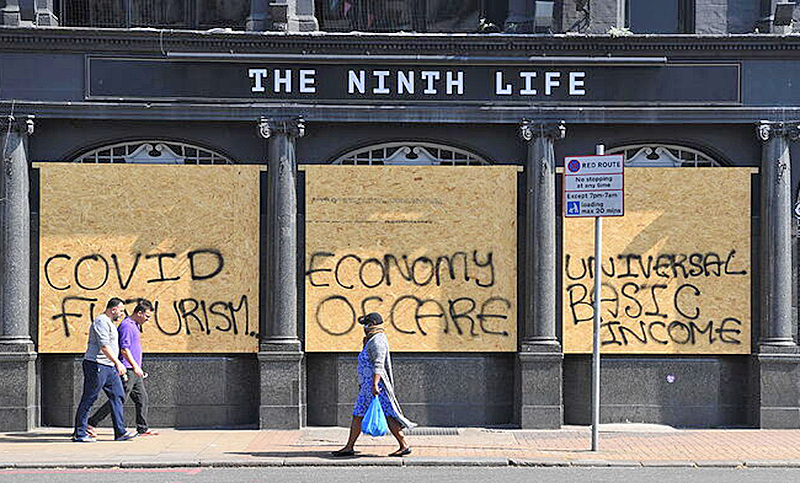 THE NINTH LIFE
RED ROUTE
No stopping
at any time
Except 7pm-7am
loading
max 20 mins
COVID
FUTURISM.
ECONOMY
OF CARE
UNIVERSAL
BASIC
INCOME